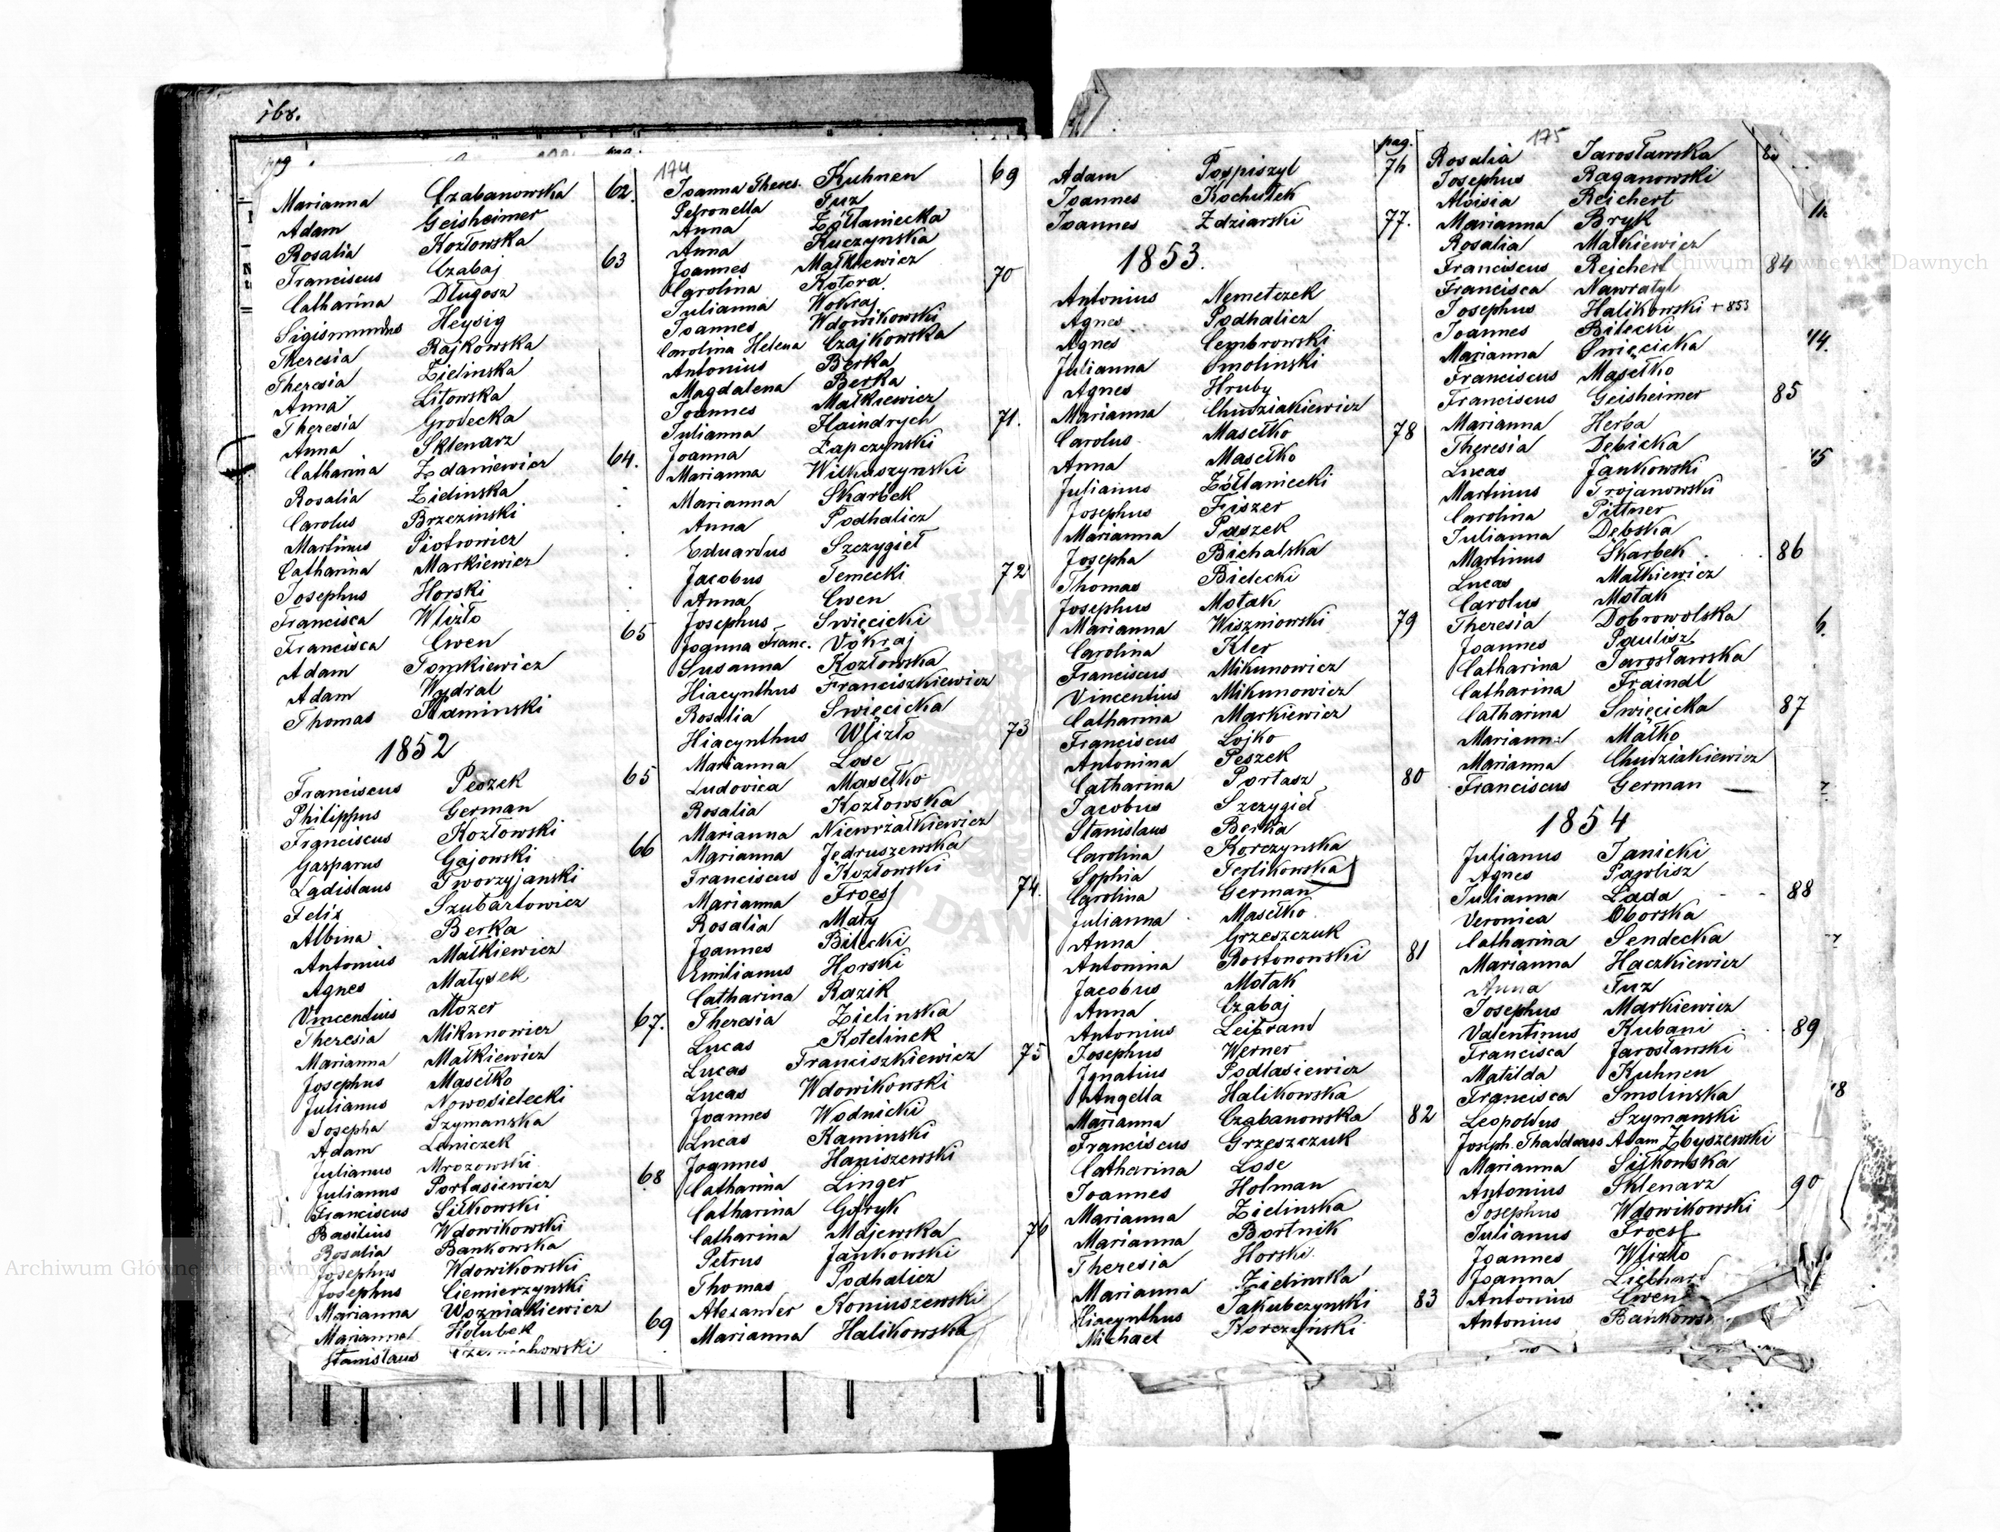 168.
pag.
Marianna Czabanowska 62.
Adam Geisheimer
Rosalia Kozłowska
Franciscus Czabaj 63
Catharina Długosz
Sigismundus Heysig
Theresia Rajkowska
Theresia Zielinska
Anna Litowska
Theresia Grodecka
Anna Sklenarz
Catharina Zdaniewicz 64.
Rosalia Zielinska
Carolus Brzezinski
Martinus Piotrowicz
Catharina Markiewicz
Josephus Horski
Francisca Wlizło
Francisca Cwen 65
Adam Tomkiewicz
Adam Wydral
Thomas Kaminski
1852
Franciscus Peszek 65
Philippus German
Franciscus Kozłowski
Gasparus Gajowski 66
Ladislaus Tworzyjanski
Felix Szubartowicz
Albina Berka
Antonius Małkiewicz
Agnes Matysek
Vincentius Mozer
Theresia Mikunowicz 67.
Marianna Małkiewicz
Josephus Masełko
Julianus Nowosielecki
Josepha Szymanska
Adam Laniczek
Julianus Mrozowski
Julianus Portasiewicz 68
Franciscus Sitkowski
Basilius Wdowikowski
Rosalia Bankowska
Josephus Wdowikowski
Josephus Ciemierzynski
Marianna Wozniakiewicz
Marianna Holubek 69
Stanislaus
174
Joanna Theres. Kuhnen 69
Petronella Tuz
Anna Żółtaniecka
Anna Kuczynska
Joannes Małkiewicz
Carolina Kotora 70
Julianna Wokraj
Joannes Wdowikowski
Carolina Helena Czajkowska
Antonius Berka
Magdalena Berka
Joannes Małkiewicz
Julianna Haindrych 71.
Joanna Łapczynski
Marianna Witkaszynski
Marianna Skarbek
Anna Podhalicz
Eduardus Szczygieł
Jacobus Temecki 72
Anna Cwen
Josephus Swięcicki
Joanna Franc. Vokraj
Susanna Kozłowska
Hiacynthus Franciszkiewicz
Rosalia Swięcicka
Hiacynthus Wlizło 73
Marianna Lose
Ludovica Masełko
Rosalia Kozłowska
Marianna Niewrzałkiewicz
Marianna Jędruszewska
Franciscus Kozłowski
Marianna Froess 74.
Rosalia Mały
Joannes Bilecki
Emilianus Horski
Catharina Razik
Theresia Zielinska
Lucas Kotelinek
Lucas Franciszkiewicz 75
Lucas Wdowikowski
Joannes Wodnicki
Lucas Kaminski
Joannes Haniszewski
Catharina Linger
Catharina Gdryk
Catharina Majewska 76
Petrus Jankowski
Thomas Podhalicz
Alexander Koniuszewski
Marianna Halikowska
pag.
Adam Pospiszyl 76
Joannes Kochułek
Joannes Zdziarski 77.
1853.
Antonius Nemetczek
Agnes Podhalicz
Agnes Cembrowski
Julianna Smolinski
Agnes Hruby
Marianna Chudziakiewicz
Carolus Masełko 78
Anna Masełko
Julianus Żółtaniecki
Josephus Fiszer
Marianna Paszek
Josepha Bichalska
Thomas Bielecki
Josephus Motak
Marianna Wiszniowski 79
Carolina Kler
Franciscus Mikunowicz
Vincentius Mikunowicz
Catharina Markiewicz
Franciscus Lojko
Antonina Peszek
Catharina Portasz 80
Jacobus Szczygieł
Stanislaus Berka
Carolina Korczynska
Sophia Terlikowska
Carolina German
Julianna Masełko
Anna Grzeszczuk
Antonina Rostononski 81
Jacobus Motak
Anna Czabaj
Antonius Leibrand
Josephus Werner
Ignatius Podlasiewicz
Angella Halikowska
Marianna Czabanowska 82
Franciscus Grzeszczuk
Catharina Lose
Joannes Holman
Marianna Zielinska
Marianna Bortnik
Theresia Horski
Marianna Zielinska
Hiacynthus Jakubczynski 83
Michael Korczyński
175
Rosalia Jarosławska
Josephus Raganowski
Aloisia Reichert
Marianna Bryk
Rosalia Małkiewicz
Franciscus Rejchert 84
Francisca Nawratyl
Josephus Halikowski + 853
Joannes Bilecki
Marianna Swięcicka
Franciscus Masełko
Franciscus Geisheimer 85
Marianna Herba
Theresia Debicka
Lucas Jankowski
Martinus Trojanowski
Carolina Pittner
Julianna Debska
Martinus Skarbek 86
Lucas Małkiewicz
Carolus Motak
Theresia Dobrowolska
Joannes Paulisz
Catharina Jarosławska
Catharina Fraindl
Catharina Swięcicka 87
Mariann: Małko
Marianna Chudziakiewicz
Franciscus German
1854
Julianus Janicki
Agnes Pawlisz
Julianna Łada 88
Veronica Oborska
Catharina Sendecka
Marianna Haczkiewicz
Anna Tuz
Josephus Markiewicz
Valentinus Kubani 89
Francisca Jarosławski
Matilda Kuhnen
Francisca Smolinska
Leopoldus Szymanski
Joseph. Thaddaeus Adam Zbyszewski
Marianna Sitkowska
Antonius Sklenarz 90
Josephus Wdowikowski
Julianus Froess
Joannes Wlizło
Joanna Liebhard
Antonius Cwen
Antonius Bańkows
Archiwum Główne Akt Dawnych
Archiwum Główne Akt Dawnych